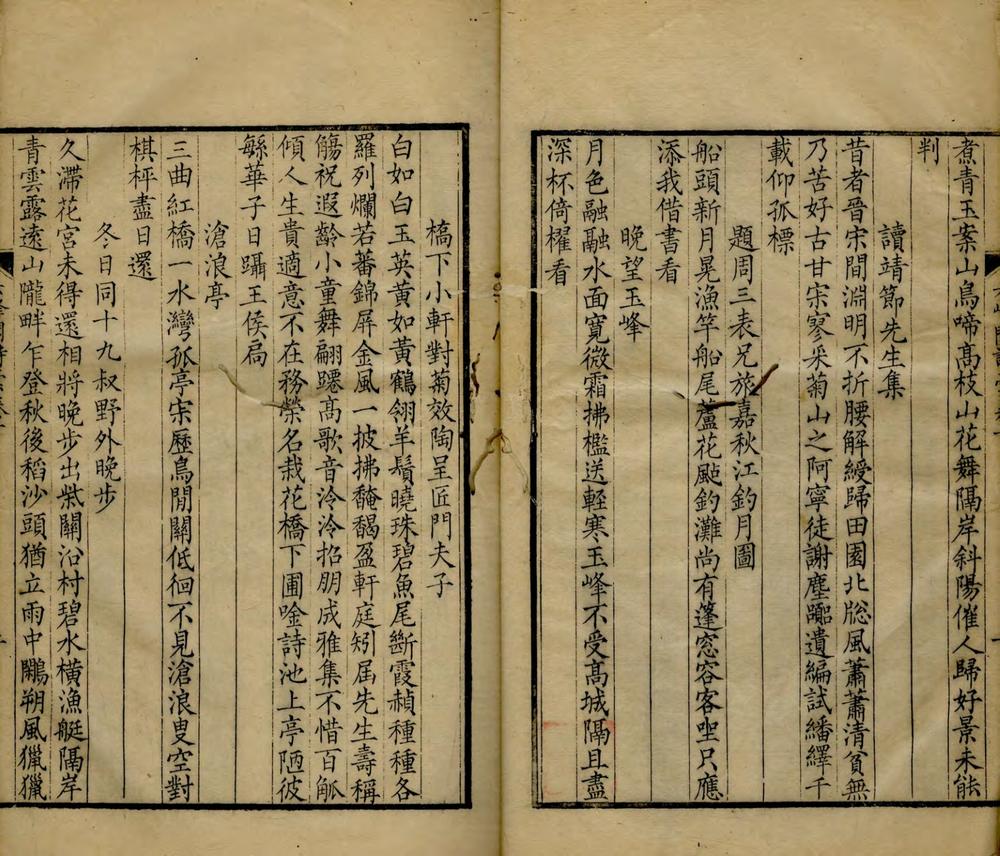 煮青玉案山鳥啼高枝山花舞隔岸斜陽催人歸好景未能
判
讀靖節先生集
昔者晉宋間淵明不折腰解綬歸田園北牕風蕭蕭清貧無
乃苦好古甘宋寥采菊山之阿寧徒謝塵嚻遺編試繙繹千
載仰孤標
題周三表兄旅嘉秋江釣月圖
船頭新月晃漁竿船尾蘆花颭釣灘尚有蓬窓容客坐只應
添我借書看
晚望玉峰
月色融融水面寬微霜拂檻送輕寒玉峰不受高城隔且盡
深杯倚櫂看
槗下小軒對菊效陶呈匠門夫子
白如白玉英黃如黃鶴翎羊鬚曉珠碧魚尾斷霞赬種種各
羅列爛若蕃錦屏金風一披拂馣馤盈軒庭矧屆先生壽稱
觴祝遐齡小童舞翩躚高歌音泠泠招朋成雅集不惜百觚
傾人生貴適意不在務榮名栽花橋下圃唫詩池上亭陋彼
繇華子日躡王侯扄
滄浪亭
三曲紅橋一水灣孤亭宋歷鳥閒關低徊不見滄浪叟空對
棋枰盡日還
冬日同十九叔野外晚步
久滯花宮未得還相將晚步出柴關沿村碧水橫漁艇隔岸
青雲露遠山隴畔乍登秋後稻沙頭猶立雨中鷳朔風獵獵